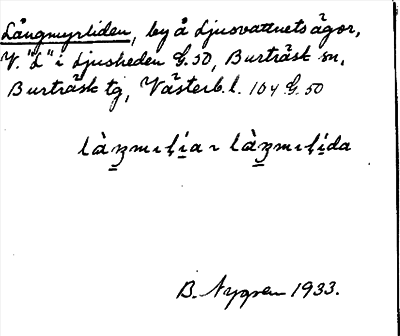 Långmyrliden, by å Ljusvattnets ägor,
V. "L" i Ljusheden G.50, Burträsk sn,
Burträsk tg, Västerb. l. 104 G. 50
B. Nygren 1933.